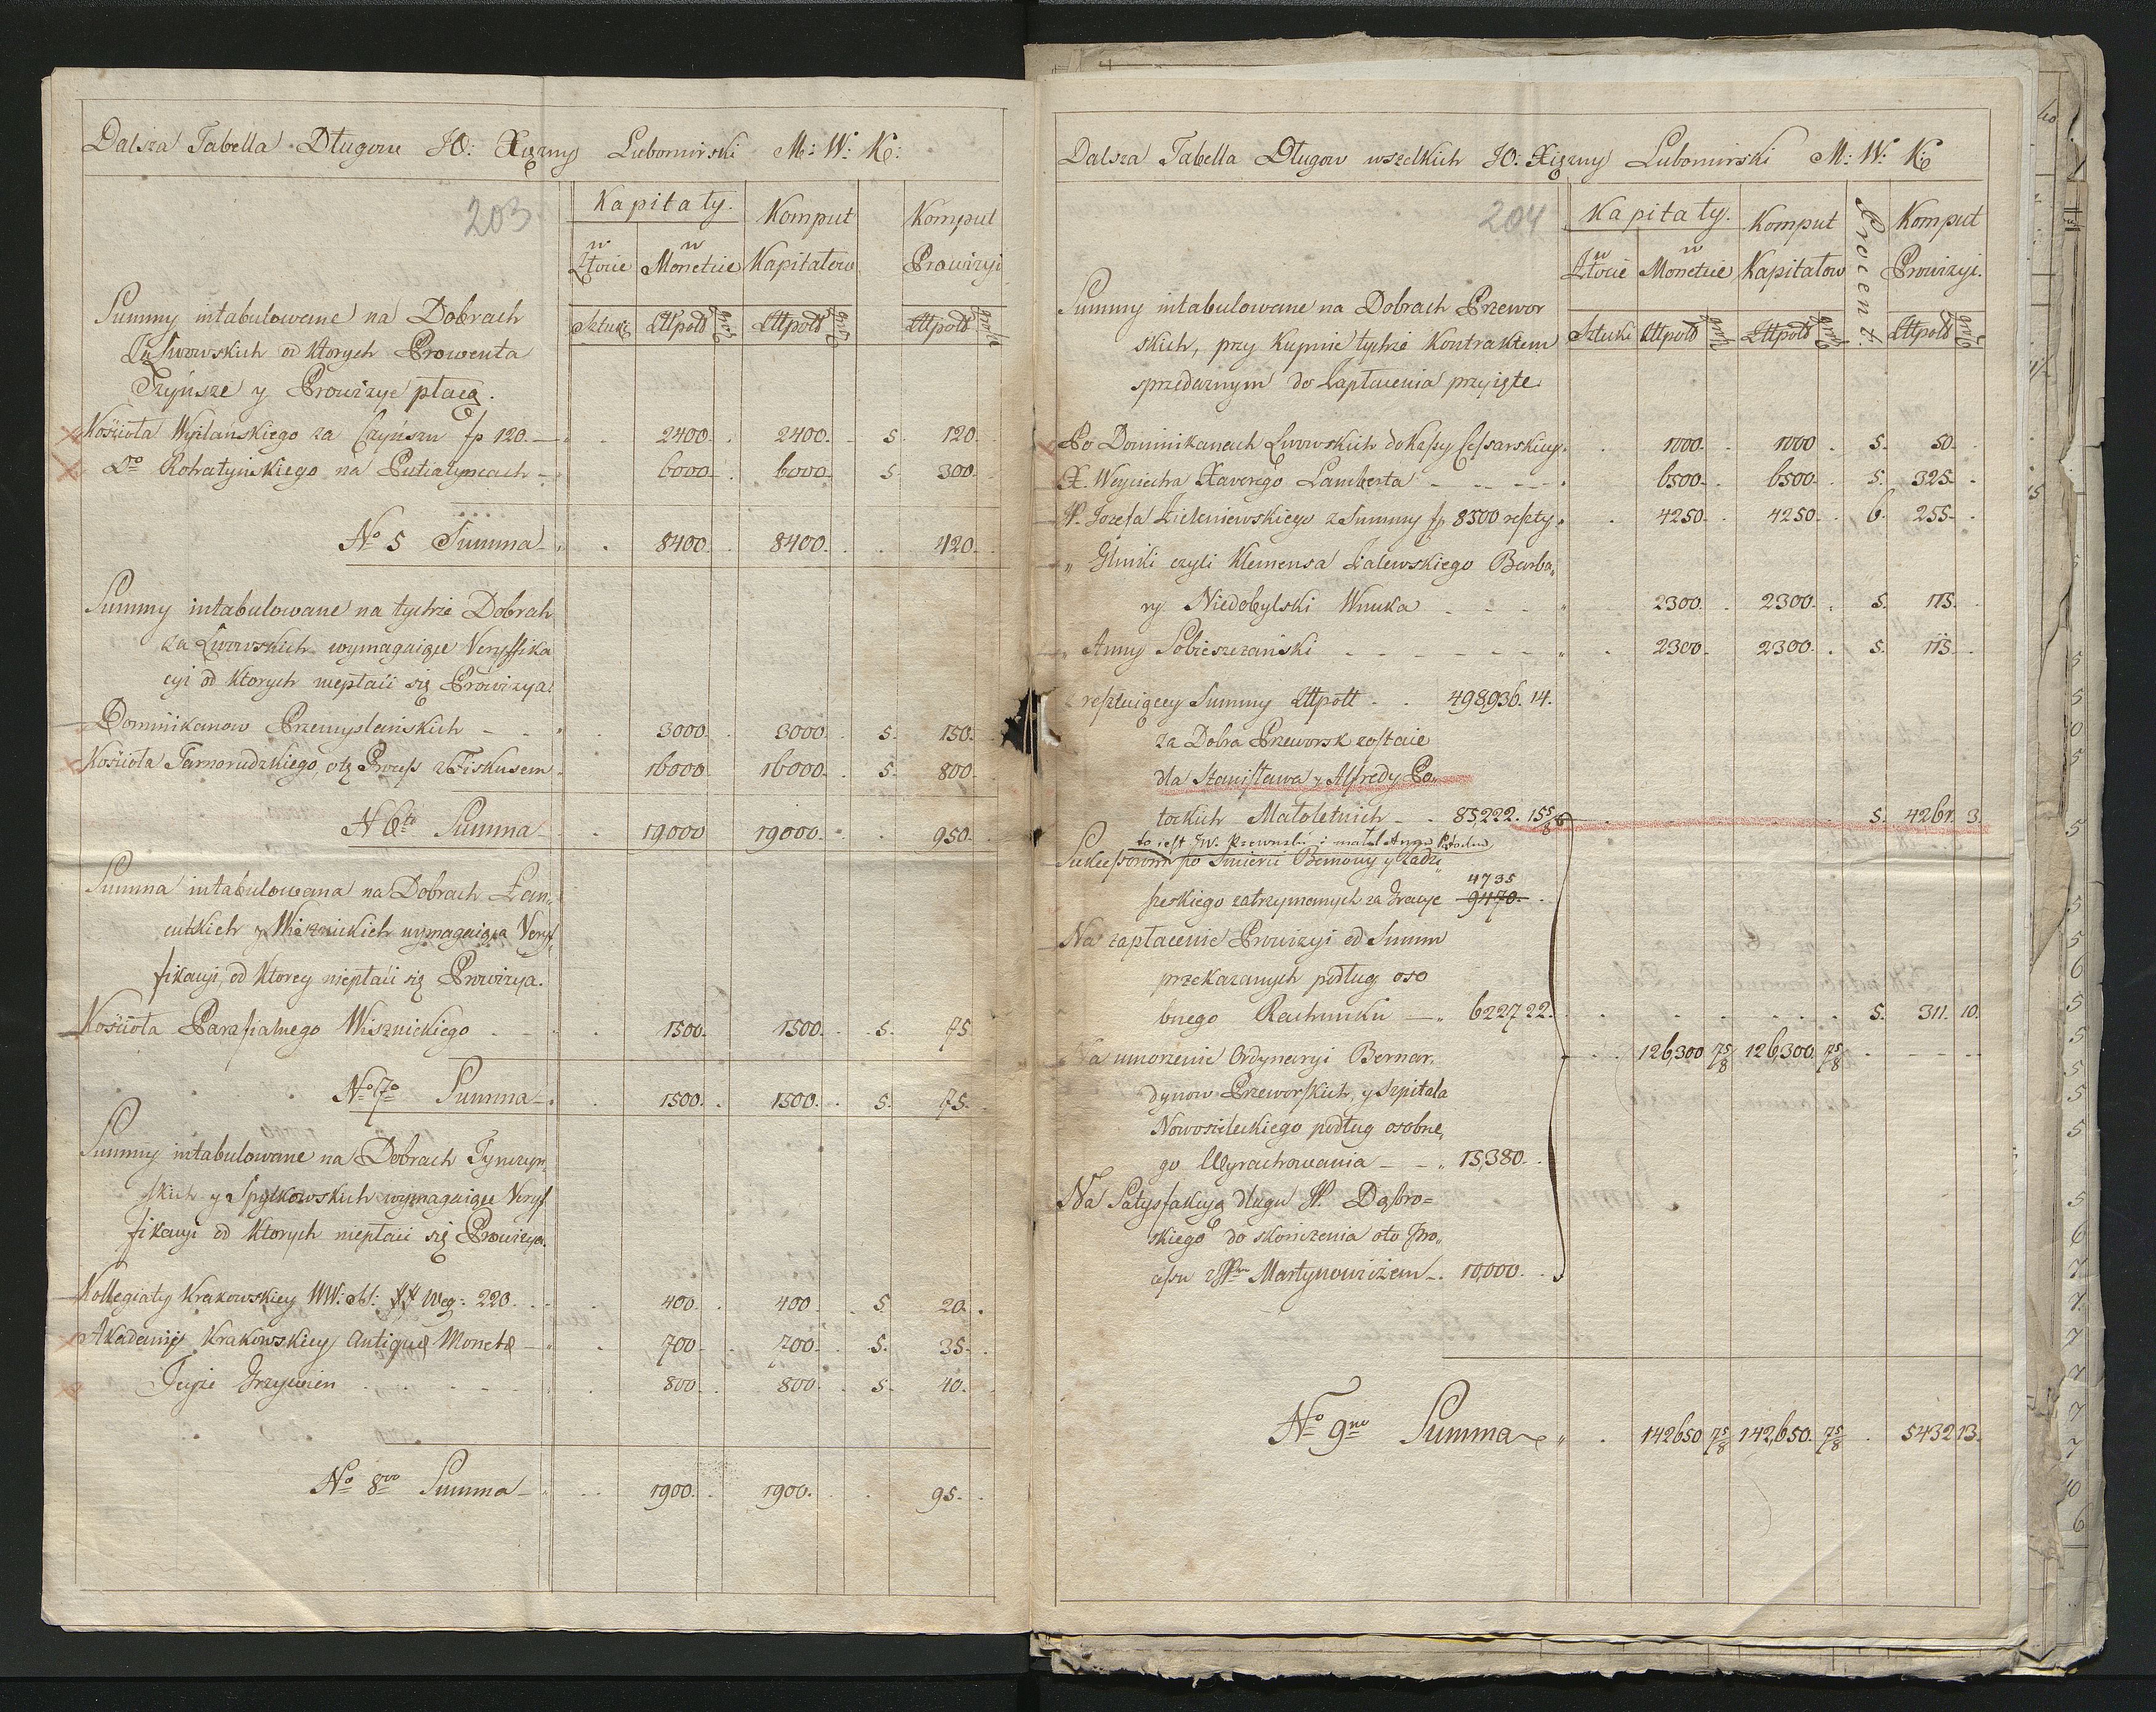 Dalsza Tabella Długow JO: Xiężny Lubomirski M: W: K:
203
Kapitały. Komput Komput
w Złocie w Monetie Kapitałow Prowizyi
Sztuki Złłpols grosz Złłpols grosz Złłpols grosze
Summy intabulowane na Dobrach
Za Lwowskich od ktorych Prowenta
Czynsze y Prowizye płacą.
Kościoła Wyżlańskiego za Czynszu fp 120. 2400. 2400. 5. 120.
Dto Rohatyńskiego na Putiatyncach 6000. 6000. 5. 300.
No 5 Summa 8400. 8400. 420.
Summy intabulowane na tychże Dobrach
za Lwowskich wymagaiące Veryffika
cyi od ktorych niepłaci się Prowizya:
Dominikanow Przemyslańskich 3000. 3000. 5. 150.
Kościoła Tarnorudzkiego, otę Process z Fiskusem 16000. 16000. 5. 800.
N 6to Summa 19000 19000. 950.
Summa intabulowana na Dobrach Łan,
cutkich y Wisznickich wymagaiąca Veryf,
fikacyi, od ktorey niepłaci się Prowizya.
Kościoła Parafialnego Wisznickiego 1500. 1500. 5. 75.
No 7o Summa 1500. 1500. 5. 75.
Summy intabulowane na Dobrach Tynczyn
skich y Spytkowskich wymagaiące Veryf
fikacyi od ktorych niepłaci się Prowizya.
Kollegiaty Krakowskiey WW: SS: Weg: 220. 400. 400. 5. 20.
Akademij Krakowskiey Antiquæ Monetæ 700. 700. 5. 35.
Teyże Grzywien 800. 800. 5. 40.
No 8vo Summa 1900. 1900. 95.
Dalsza Tabella Długow wszelkich JO: Xiężny Lubomirski M: W: K:
204
Kapitały. Komput Procent. Komput
w Złocie w Monetie Kapitałow Prowizyi.
Sztuki Złłpols grosz Złłpols grosz Złłpols grosz
Summy intabulowane na Dobrach Przewor
skich, przy Kupnie tychże Kontraktem
sprzedarznym do Zapłacenia przyięte.
Po Dominikanach Lwowskich do Kassy Cessarskiey. 1000. 1000. 5. 50.
X. Woyciecha Xawerego Lamberta 6500. 6500. 5. 325.
P. Jozefa Zieleniewskiego z Summy fp 8500 reszty. 4250. 4250. 6. 255.
" Glinki czyli Klemensa Zalewskiego Barba,
ry Niedobylski Wnuka 2300. 2300. 5. 115.
" Anny Sobieszczański 2300. 2300. 5. 115.
z resztuiącey Summy Złłpoll 498,936. 14.
za Dobra Przeworsk zostaie
dla Stanisława y Alfredy Po,
tockich Małoletnich 85,222. 15 5/8 5. 4261. 3.
Sukcessorom po Smierci Bemowy y Radzi
4735
szeskiego zatrzymanych za Gracye 9470.
Na zapłacenie Prowizyi od Summ
przekazanych podług oso
bnego Rachunku 6227 22. 5. 311. 10.
Na umorzenie Ordynaryi Bernar, 126,300 7 5/8 126,300 7 5/8
dynow Przeworskich, y Szpitala
Nowosieleckiego podług osobne,
go Wyrachowania 15,380.
Na Satysfakcyą długu P. Dąbro=
skiego do skończenia oto Pro,
cessu z Pm Martynowiczem 10,000.
No 9no Summa 142650 7 5/8 142,650. 7 5/8 5432 13.